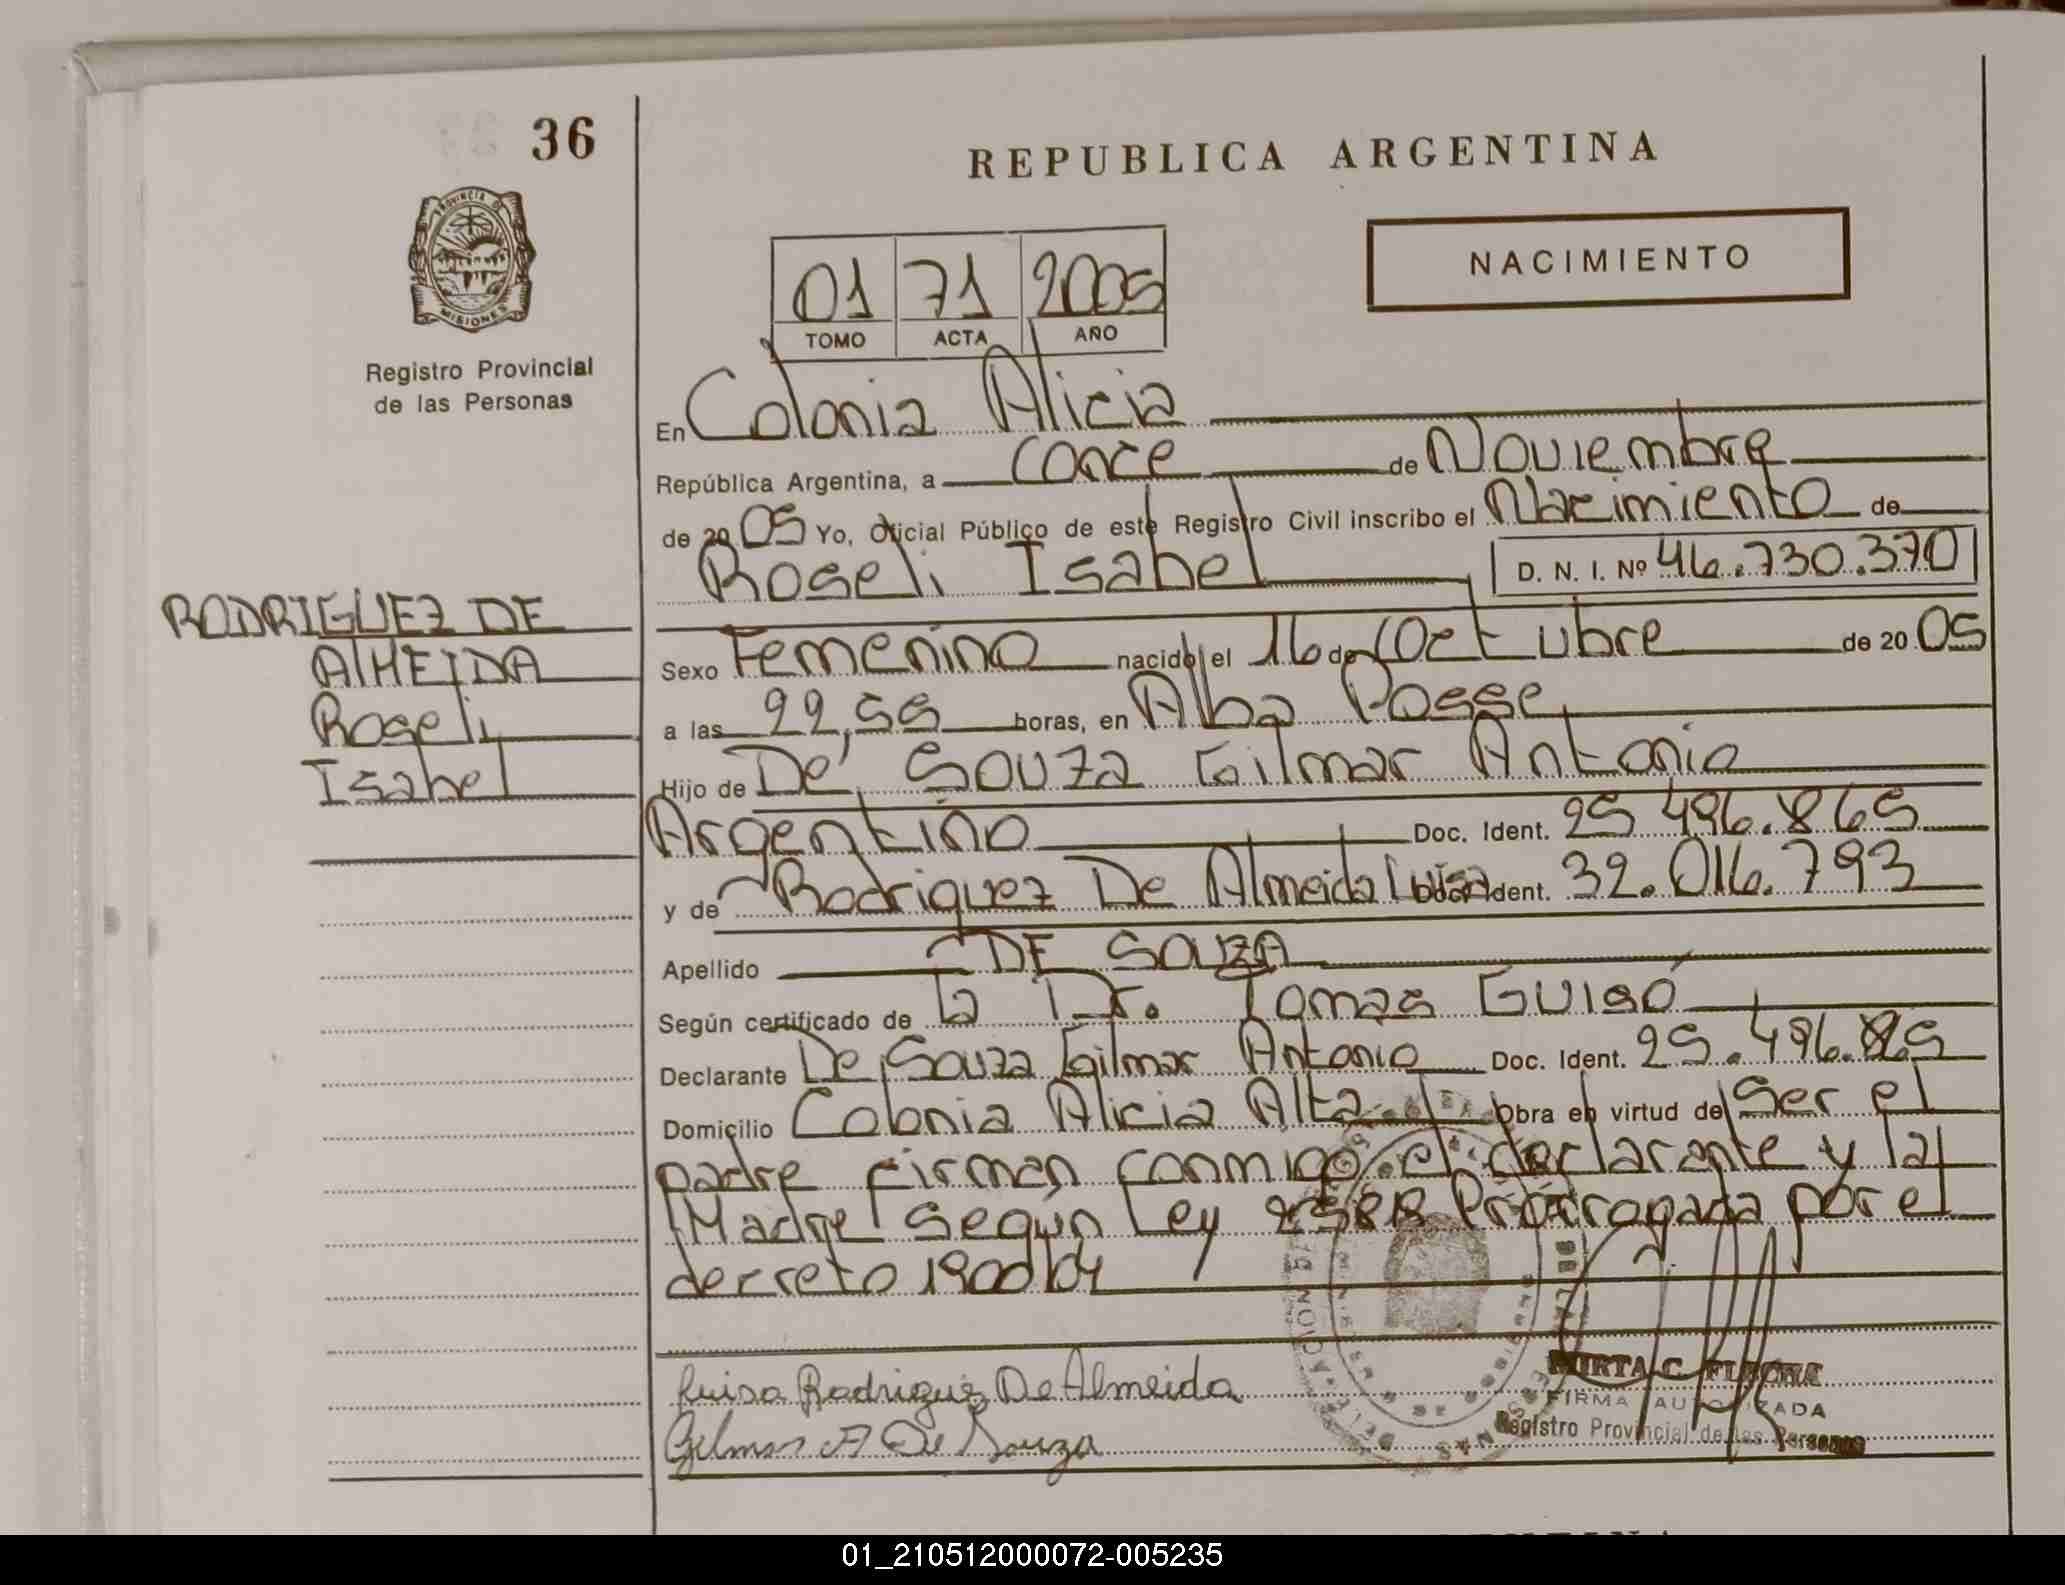 36
REPUBLICA ARGENTINA
NACIMIENTO
PROVINCIA DE
MISIONES
Registro Provincial
de las Personas
01 71 2005
TOMO ACTA AÑO
En Colonia Alicia
República Argentina, a once de Noviembre
de 2005 Yo, Oficial Público de este Registro Civil inscribo el Nacimiento de
Roseli Isabel D. N. I. Nº 46.730.370
RODRIGUEZ DE
ALMEIDA
Roseli
Isabel
Sexo Femenino nacido el 16 de Octubre de 2005
a las 22,55 horas, en Alba Posse
Hijo de De Souza Gilmar Antonio
Argentino Doc. Ident. 25 496.865
y de Rodriguez De Almeida Luisa Doc. Ident. 32.016.793
Apellido DE SOUZA
Según certificado de la Dr. Tomas Guisó
Declarante De Souza Gilmar Antonio Doc. Ident. 25.496.
Domicilio Colonia Alicia Alta Obra en virtud de Ser el
padre firman conmigo el declarante y la
Madre según Ley Prorrogada por el
decreto 1900/04
Luisa Rodriguez De Almeida
Gilmar A De Souza
MIRTA C.
FIRMA AUTORIZADA
Registro Provincial de las Personas
01_210512000072-005235